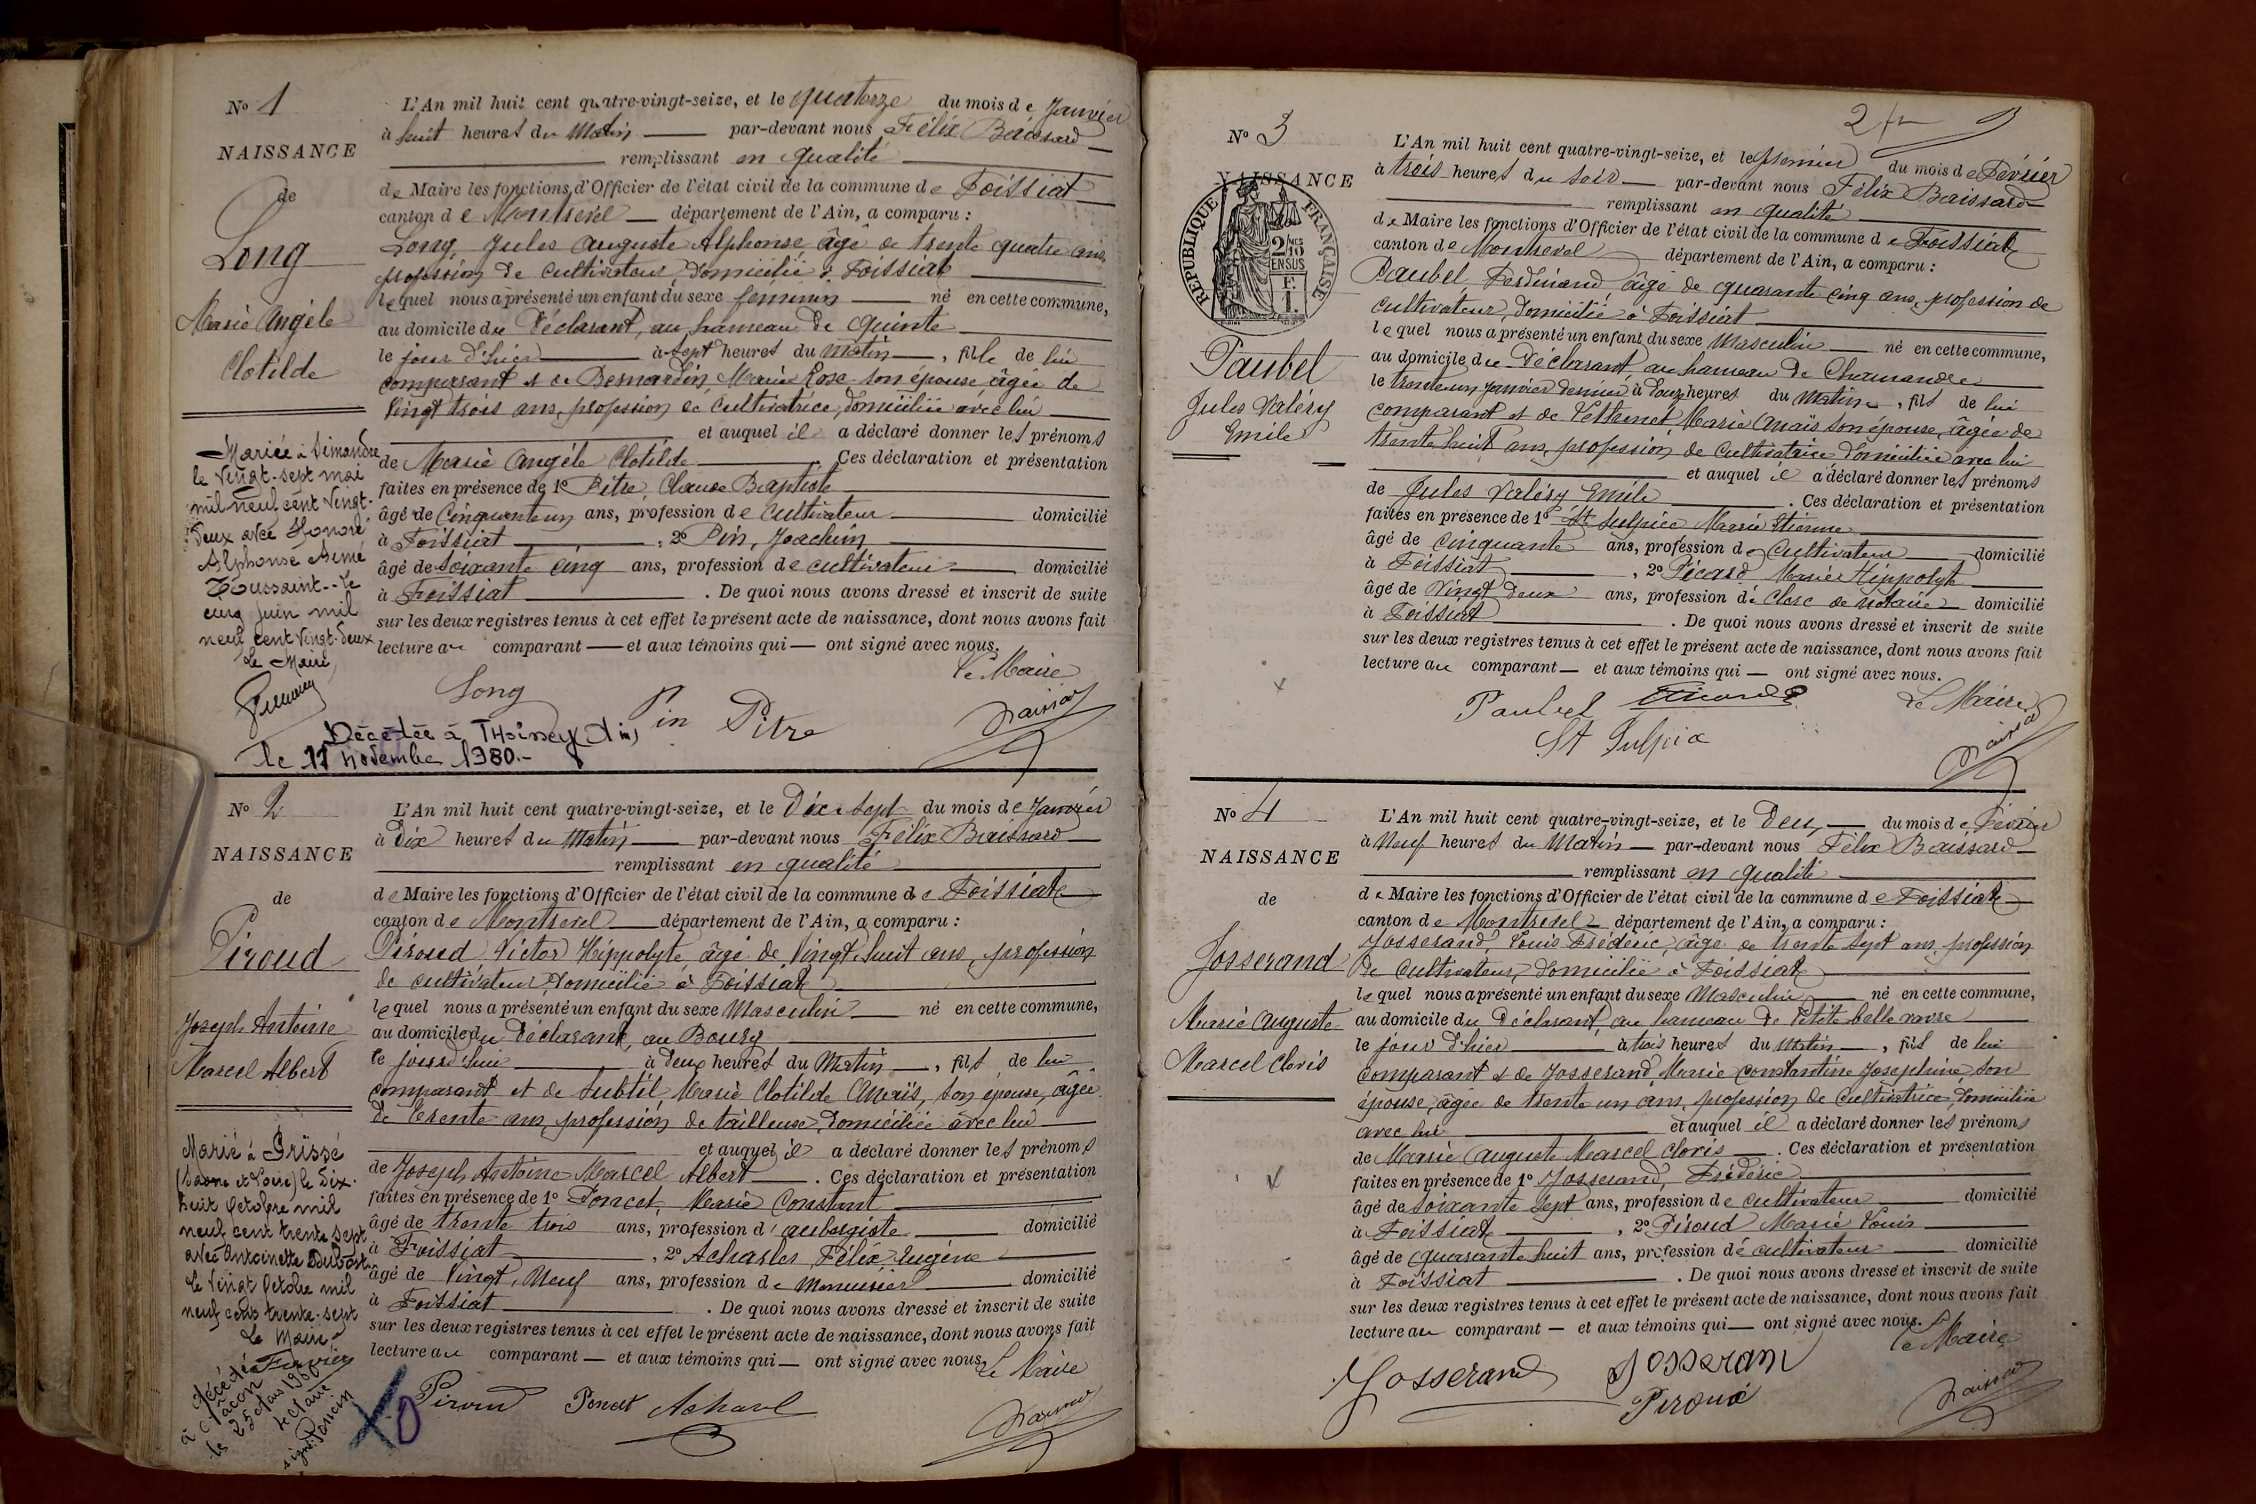 N° 1
NAISSANCE
de
Long
Marie Angèle
Clotilde
Mariée à Simandre
le vingt-sept mai
mil neuf cent vingt-
deux avec Honoré
Alphonse Aimé
Toussaint. - Le
cinq juin mil
neuf cent vingt-deux
Le Maire,
L'An mil huit cent quatre-vingt-seize, et le quatorze du mois de Janvier
à huit heures du Matin par-devant nous Félix Baissard
remplissant en qualité
de Maire les fonctions d'Officier de l'état civil de la commune de Foissiat
canton de Montrevel département de l'Ain, a comparu :
Long, Jules Auguste Alphonse âgé de trente quatre ans,
profession de cultivateur, domicilié à Foissiat
lequel nous a présenté un enfant du sexe féminin né en cette commune,
au domicile du Déclarant, au hameau de Quinte
le jour d'hier à sept heures du Matin, fille de lui
comparant et de Bernardin, Marie Rose son épouse âgée de
vingt trois ans, profession de cultivatrice, domiciliée avec lui
et auquel il a déclaré donner les prénoms
de Marie Angèle Clotilde. Ces déclaration et présentation
faites en présence de 1° Pitre, Claude Baptiste
âgé de Cinquante un ans, profession de cultivateur domicilié
à Foissiat, 2° Pin, Joachim
âgé de soixante cinq ans, profession de cultivateur domicilié
à Foissiat. De quoi nous avons dressé et inscrit de suite
sur les deux registres tenus à cet effet le présent acte de naissance, dont nous avons fait
lecture au comparant et aux témoins qui ont signé avec nous.
Le Maire
Long Pin Pitre Baissard
Décédée à THoissey (Ain)
le 11 novembre 1980.-
N° 2
NAISSANCE
de
Piroud
Joseph Antoine
Marcel Albert
Marié à Grissé
(Saône et Loire) le dix-
huit Octobre mil
neuf cent trente sept
avec Antoinette Dubost
Le vingt Octobre mil
neuf cent trente-sept
Le Maire
Décédé
à Mâcon
le 25 mars
L'An mil huit cent quatre-vingt-seize, et le Dix sept du mois de Janvier
à Dix heures du Matin par-devant nous Félix Baissard
remplissant en qualité
de Maire les fonctions d'Officier de l'état civil de la commune de Foissiat
canton de Montrevel département de l'Ain, a comparu :
Piroud Victor Hippolyte âgé de vingt huit ans, profession
de cultivateur, domicilié à Foissiat
lequel nous a présenté un enfant du sexe Masculin né en cette commune,
au domicile du Déclarant, au Bourg
le jourd'hui à deux heures du Matin, fils de lui
comparant et de Subtil Marie Clotilde Anaïs, son épouse, âgée
de trente ans, profession de tailleuse, domiciliée avec lui
et auquel il a déclaré donner les prénoms
de Joseph Antoine Marcel Albert. Ces déclaration et présentation
faites en présence de 1° Poncet, Marie Constant
âgé de trente trois ans, profession d'aubergiste domicilié
à Foissiat, 2° Acharles Félix Eugène
âgé de Vingt Neuf ans, profession de Menuisier domicilié
à Foissiat. De quoi nous avons dressé et inscrit de suite
sur les deux registres tenus à cet effet le présent acte de naissance, dont nous avons fait
lecture au comparant et aux témoins qui ont signé avec nous.
Le Maire
Piroud Poncet Acharl Baissard
2
N° 3
NAISSANCE
RÉPUBLIQUE FRANÇAISE
2/10 EN SUS
Paubel
Jules Valéry
Emile
L'An mil huit cent quatre-vingt-seize, et le premier du mois de Février
à trois heures du soir par-devant nous Félix Baissard
remplissant en qualité
de Maire les fonctions d'Officier de l'état civil de la commune de Foissiat
canton de Montrevel département de l'Ain, a comparu :
Paubel, Ferdinand, âgé de quarante cinq ans, profession de
cultivateur, domicilié à Foissiat
lequel nous a présenté un enfant du sexe Masculin né en cette commune,
au domicile du Déclarant, au hameau de Chamandre
le trente un Janvier dernier à Douze heures du Matin, fils de lui
comparant et de Marie Anaïs son épouse, âgée de
trente huit ans, profession de cultivatrice domiciliée avec lui
et auquel il a déclaré donner les prénoms
de Jules Valéry Emile. Ces déclaration et présentation
faites en présence de 1° St Sulpice Marie Etienne
âgé de cinquante ans, profession de cultivateur domicilié
à Foissiat, 2° Picard Marie Hippolyte
âgé de Vingt deux ans, profession de Clerc de notaire domicilié
à Foissiat. De quoi nous avons dressé et inscrit de suite
sur les deux registres tenus à cet effet le présent acte de naissance, dont nous avons fait
lecture au comparant et aux témoins qui ont signé avec nous.
Paubel Picard Le Maire
St Sulpice Baissard
N° 4
NAISSANCE
de
Josserand
Marie Auguste
Marcel Clovis
L'An mil huit cent quatre-vingt-seize, et le Deux du mois de Février
à Neuf heures du Matin par-devant nous Félix Baissard
remplissant en qualité
de Maire les fonctions d'Officier de l'état civil de la commune de Foissiat
canton de Montrevel département de l'Ain, a comparu :
Josserand, Louis Frédéric, âgé de trente sept ans, profession
de cultivateur, domicilié à Foissiat
lequel nous a présenté un enfant du sexe Masculin né en cette commune,
au domicile du Déclarant, au hameau de Petite belle vavre
le jour d'hier à trois heures du Matin, fils de lui
comparant et de Josserand, Marie Constantine Josephine, son
épouse, âgée de trente un ans, profession de Cultivatrice, domiciliée
avec lui et auquel il a déclaré donner les prénoms
de Marie Auguste Marcel Clovis. Ces déclaration et présentation
faites en présence de 1° Josserand, Frédéric
âgé de soixante sept ans, profession de cultivateur domicilié
à Foissiat, 2° Piroud Marie Louis
âgé de quarante huit ans, profession de cultivateur domicilié
à Foissiat. De quoi nous avons dressé et inscrit de suite
sur les deux registres tenus à cet effet le présent acte de naissance, dont nous avons fait
lecture au comparant et aux témoins qui ont signé avec nous.
Le Maire
Josserand Josseran
Piroud Baissard